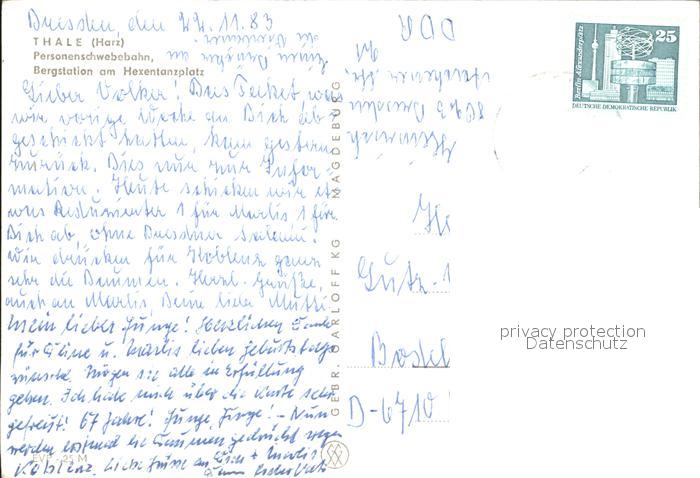 Dresden, den 22.11.83
THALE (Harz)
Personenschwebebahn,
Bergstation am Hexentanzplatz
Lieber Volker! Das Paket, was
wir vorige Woche an Dich ab
geschickt hatten, kam gestern
zurück. Dies nur zur Infor-
mation. Heute schicken wir et-
was 1 für Marlis 1 für
Dich ab, ohne Dresdner Salami.
Wir drücken für Koblenz ganz
sehr die Daumen. Herzl. Grüße,
auch an Marlis, Deine liebe Mutti
Mein lieber Junge! Herzlichen Dank
für Deine u. Marlis lieben Geburtstags
wünsche. Mögen sie alle in Erfüllung
gehen. Ich habe mich über die Karte sehr
gefreut! 67 Jahre! Junge, Junge! - Nun
werden die Daumen gedrückt wegen
Koblenz. Liebe Grüße an Dich + Marlis!
EVP -,25 M
GEBR. GARLOFF KG MAGDEBURG
DDR
Heinrich
Gutz-
D-6710
Berlin-Alexanderplatz
25
DEUTSCHE DEMOKRATISCHE REPUBLIK
privacy protection
Datenschutz